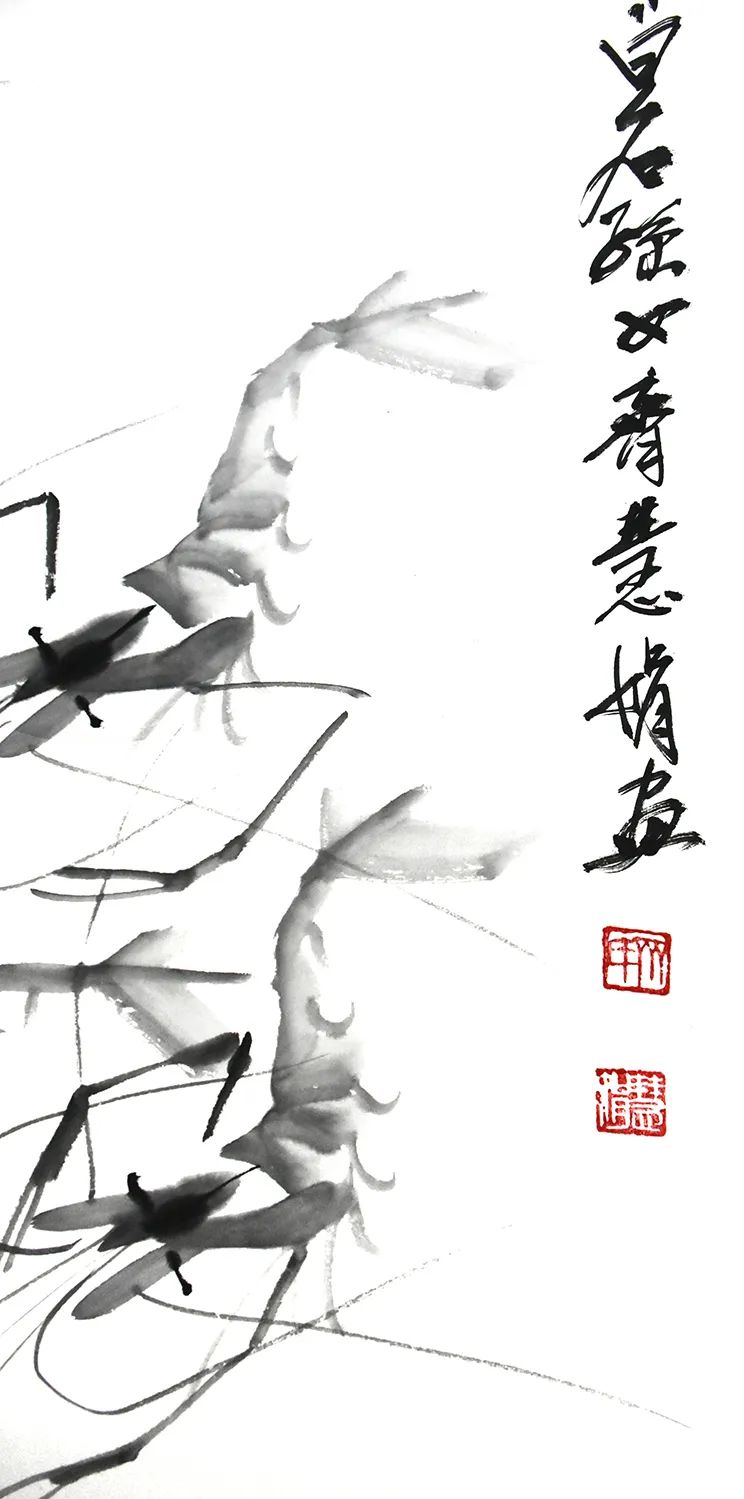 白石孫女齊慧娟画
慧娟